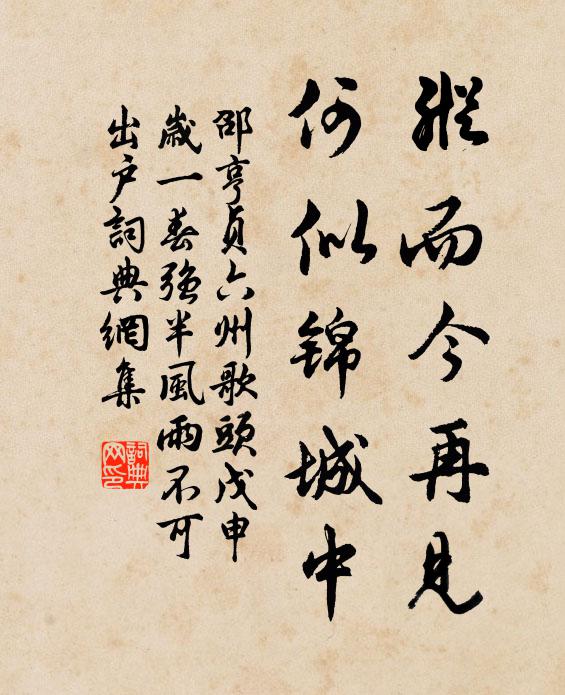 縱而今再見
何似錦城中
邵亨貞六州歌頭戊申
歲一春強半風雨不可
出户詞典網集
詞典网印